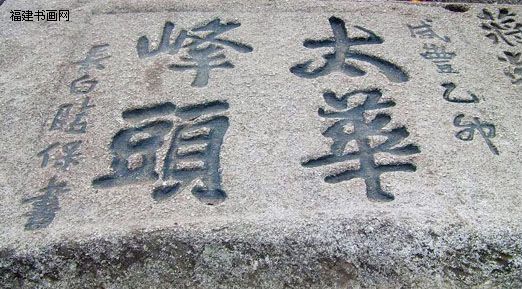 福建书画网
咸豐乙卯
太華
峰頭
長白保書